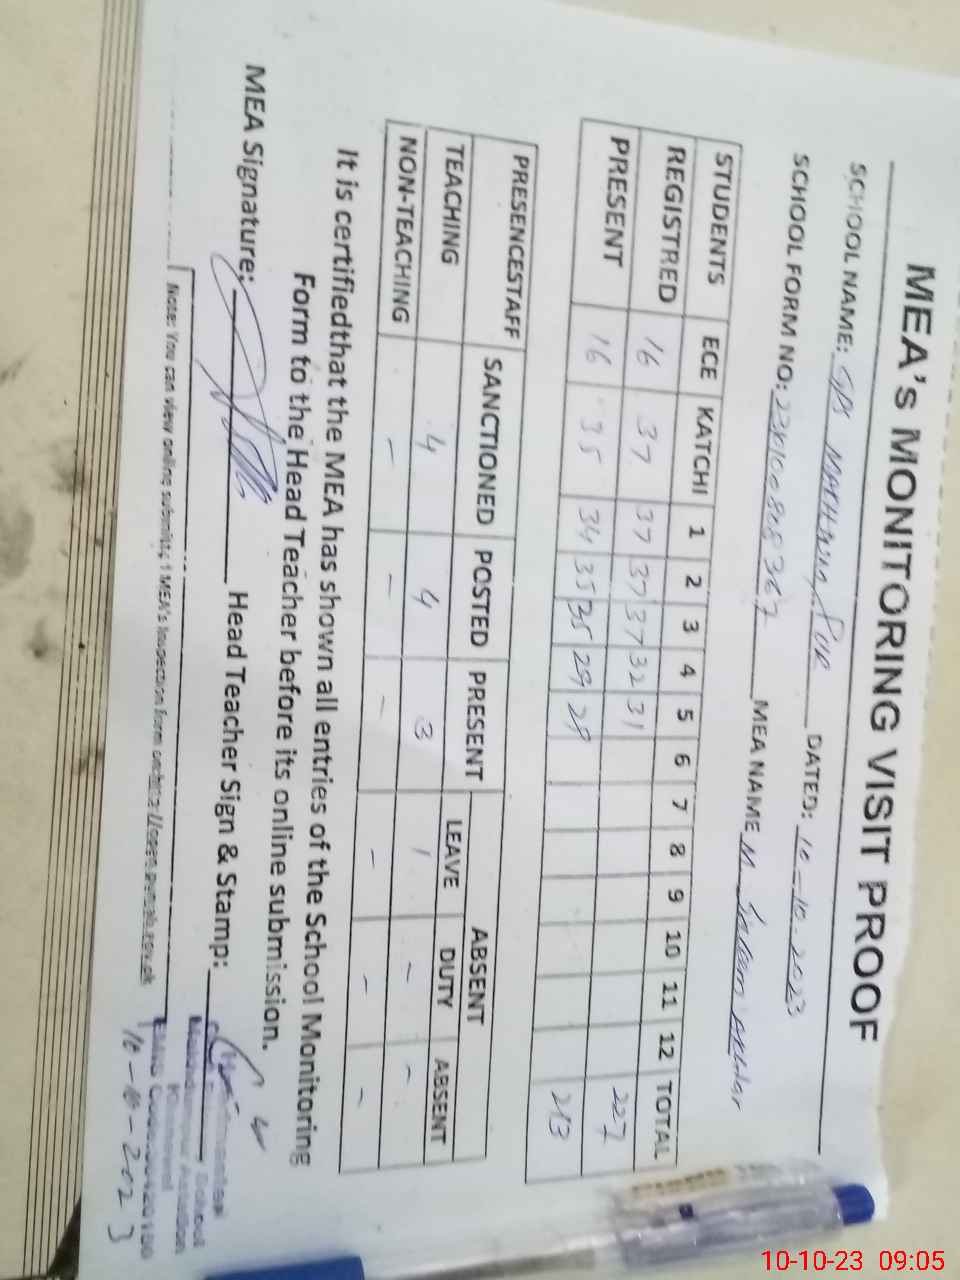 MEA's MONITORING VISIT PROOF
SCHOOL NAME: GPS DATED: 10-10-2023
SCHOOL FORM NO: MEA NAME M. Akhtar
STUDENTS ECE KATCHI 1 2 3 4 5 6 7 8 9 10 11 12 TOTAL
REGISTRED 16 37 37 37 37 32 31 227
PRESENT 16 35 34 35 35 29 29 213
PRESENCESTAFF SANCTIONED POSTED PRESENT ABSENT
LEAVE DUTY ABSENT
TEACHING 4 4 3 1 - -
NON-TEACHING - - - - - -
It is certifiedthat the MEA has shown all entries of the School Monitoring
Form to the Head Teacher before its online submission.
MEA Signature: Head Teacher Sign & Stamp:
Note: You can view online submitted MEA's Inspection form on
10-10-2023
10-10-23 09:05